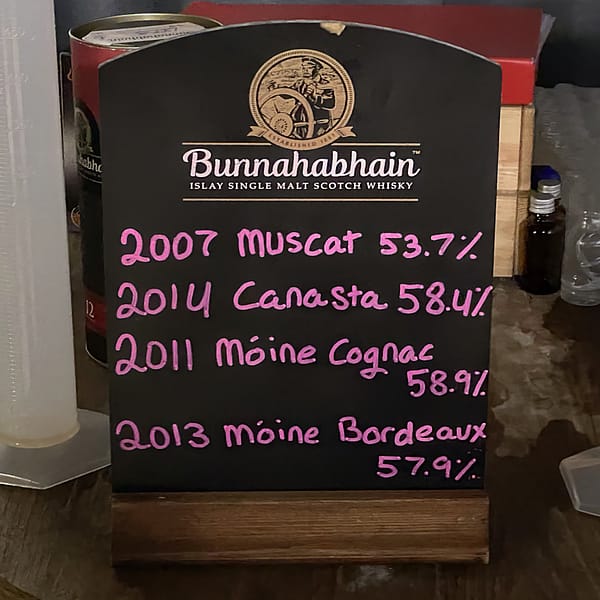 Bunnahabhain
ESTABLISHED 1881
Bunnahabhain™
ISLAY SINGLE MALT SCOTCH WHISKY
2007 Muscat 53.7%
2014 Canasta 58.4%
2011 Móine Cognac
58.9%
2013 Móine Bordeaux
57.9%
12